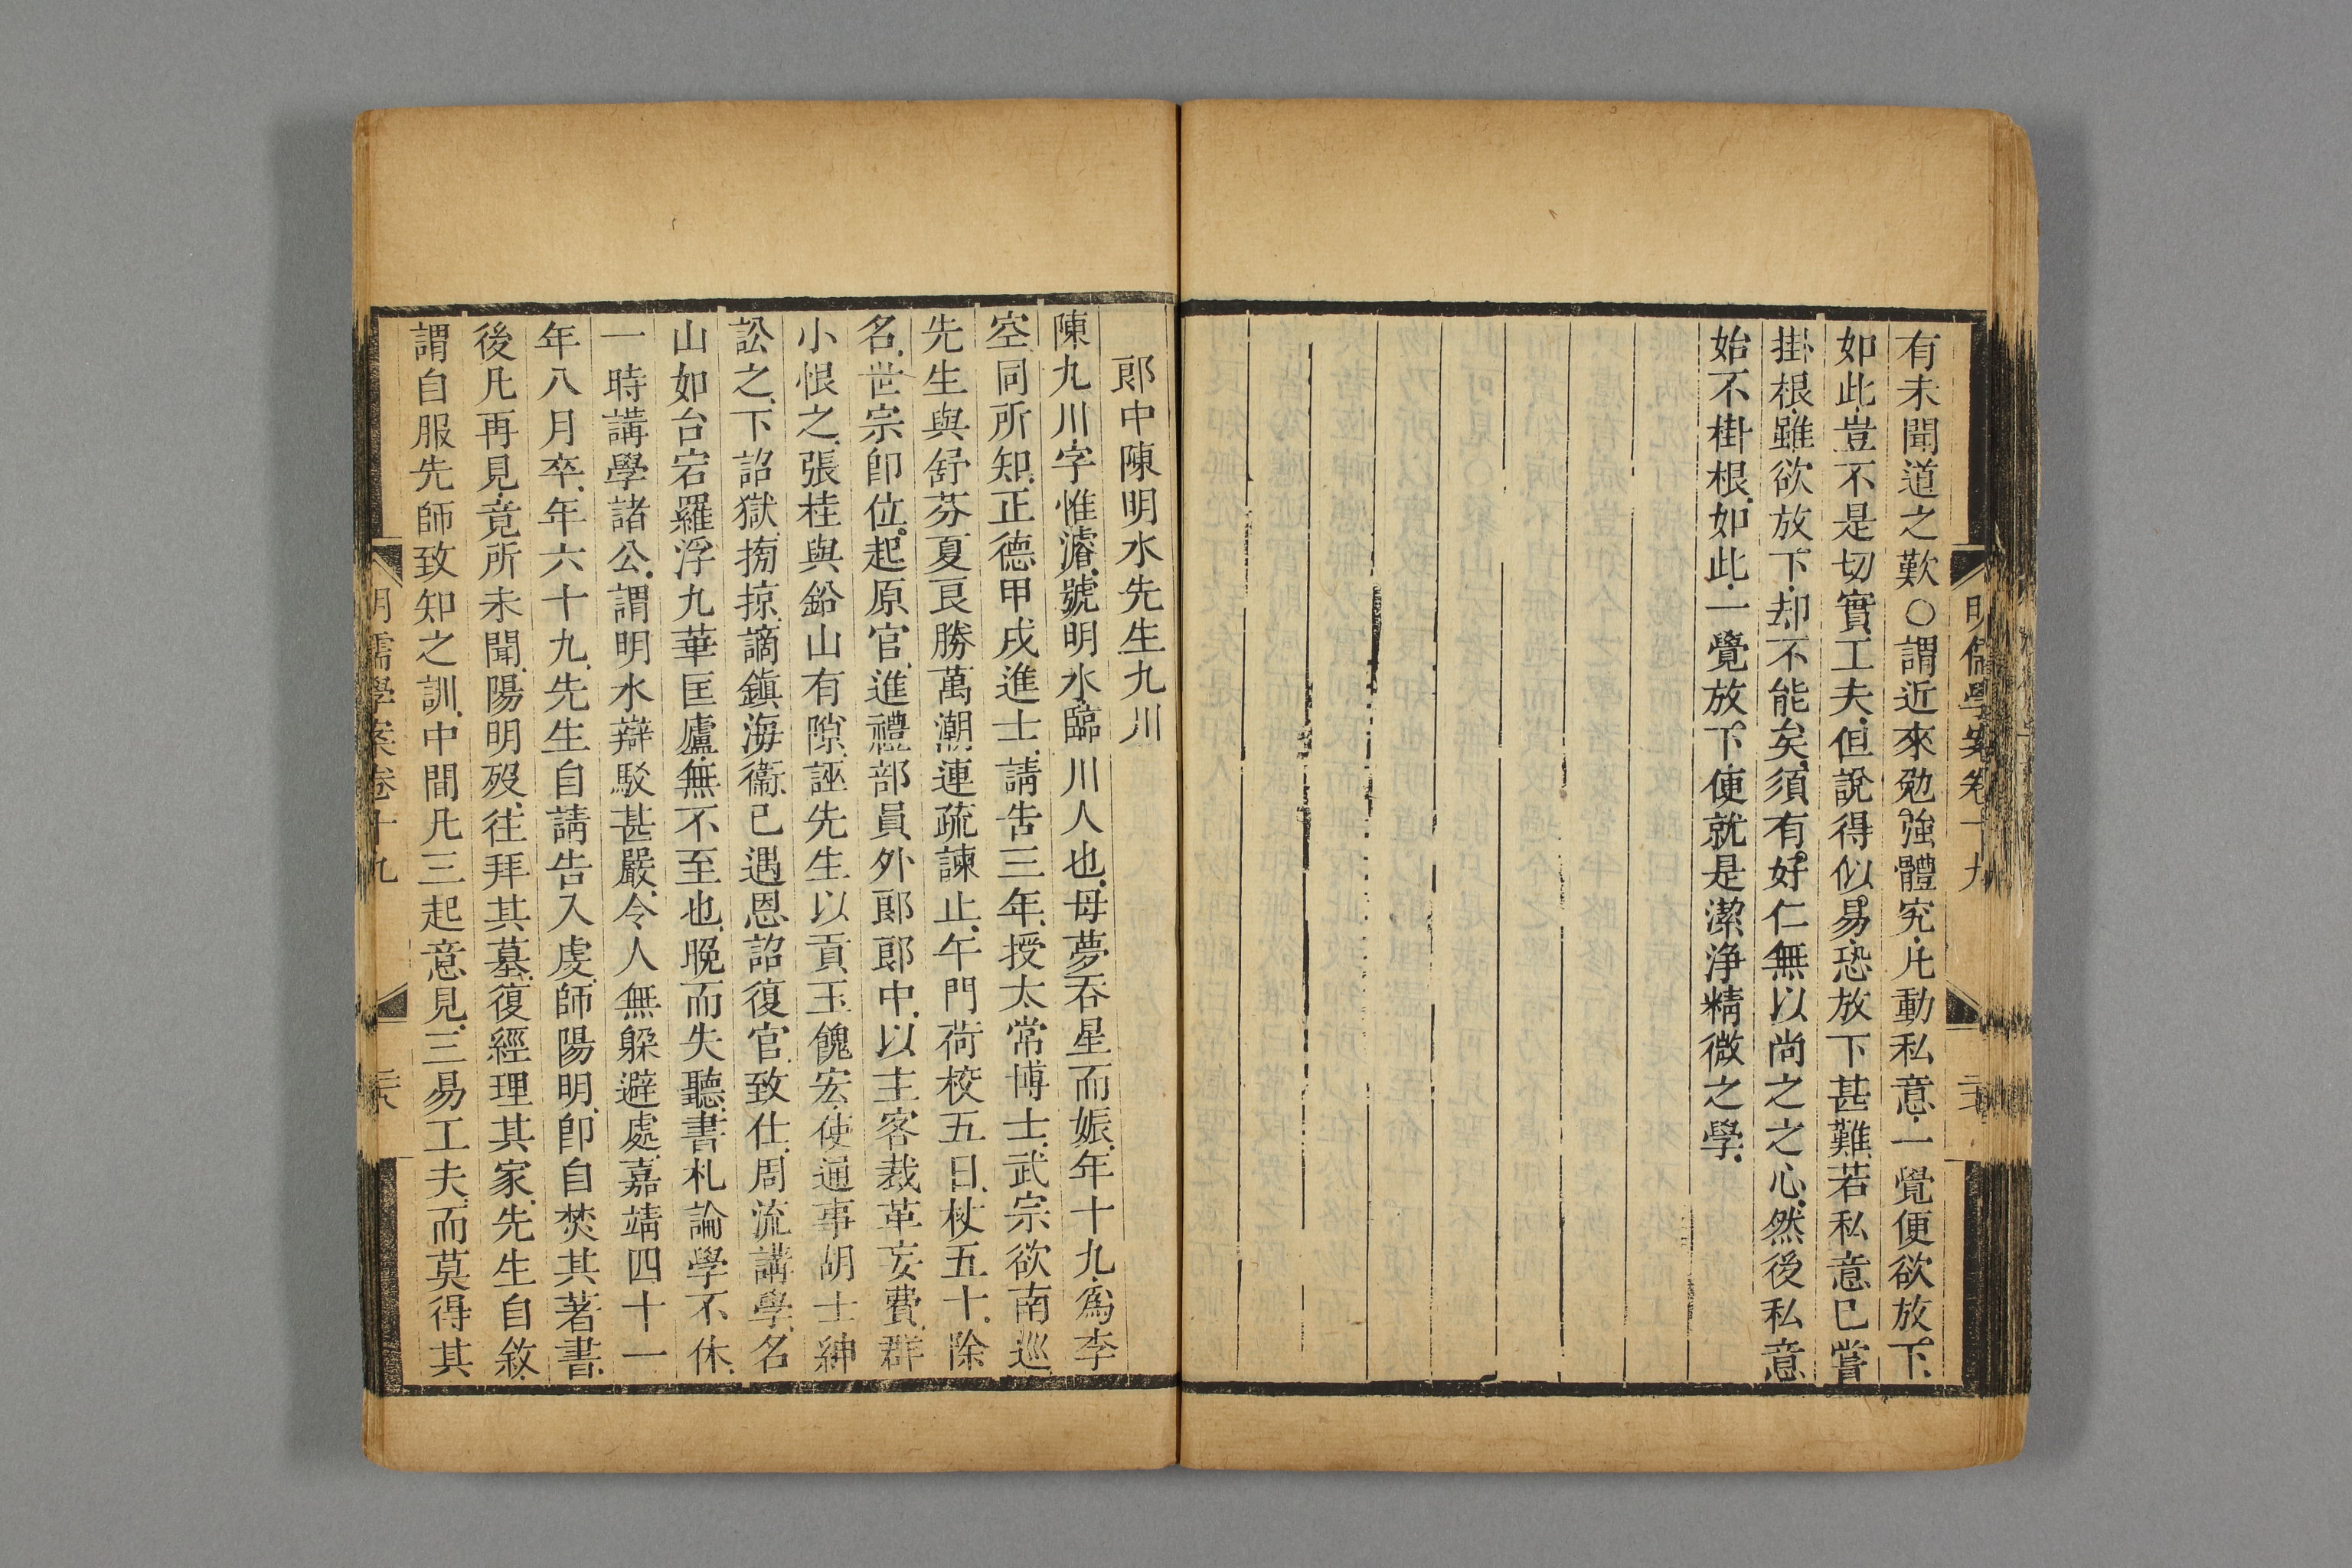 有未聞道之歎○謂近來勉強體究凡動私意一覺便欲放下
如此豈不是切實工夫但說得似易恐放下甚難若私意已嘗
掛根雖欲放下却不能矣須有好仁無以尚之之心然後私意
始不掛根如此一覺放下便就是潔淨精微之學
郞中陳明水先生九川
陳九川字惟濬號明水臨川人也母夢吞星而娠年十九爲李
空同所知正德甲戌進士請告三年授太常博士武宗欲南巡
先生與舒芬夏良勝萬潮連疏諫止午門荷校五日杖五十除
名世宗卽位起原官進禮部員外郞郞中以主客裁革妄費群
小恨之張桂與鉛山有隙誣先生以貢玉餽宏使通事胡士紳
訟之下詔獄搒掠謫鎭海衞已遇恩詔復官致仕周流講學名
山如台宕羅浮九華匡廬無不至也晩而失聽書札論學不休
一時講學諸公謂明水辯駁甚嚴令人無躱避處嘉靖四十一
年八月卒年六十九先生自請告入虔師陽明卽自焚其著書
後凡再見竟所未聞陽明歿往拜其墓復經理其家先生自敘
謂自服先師致知之訓中間凡三起意見三易工夫而莫得其
明儒學案卷十九